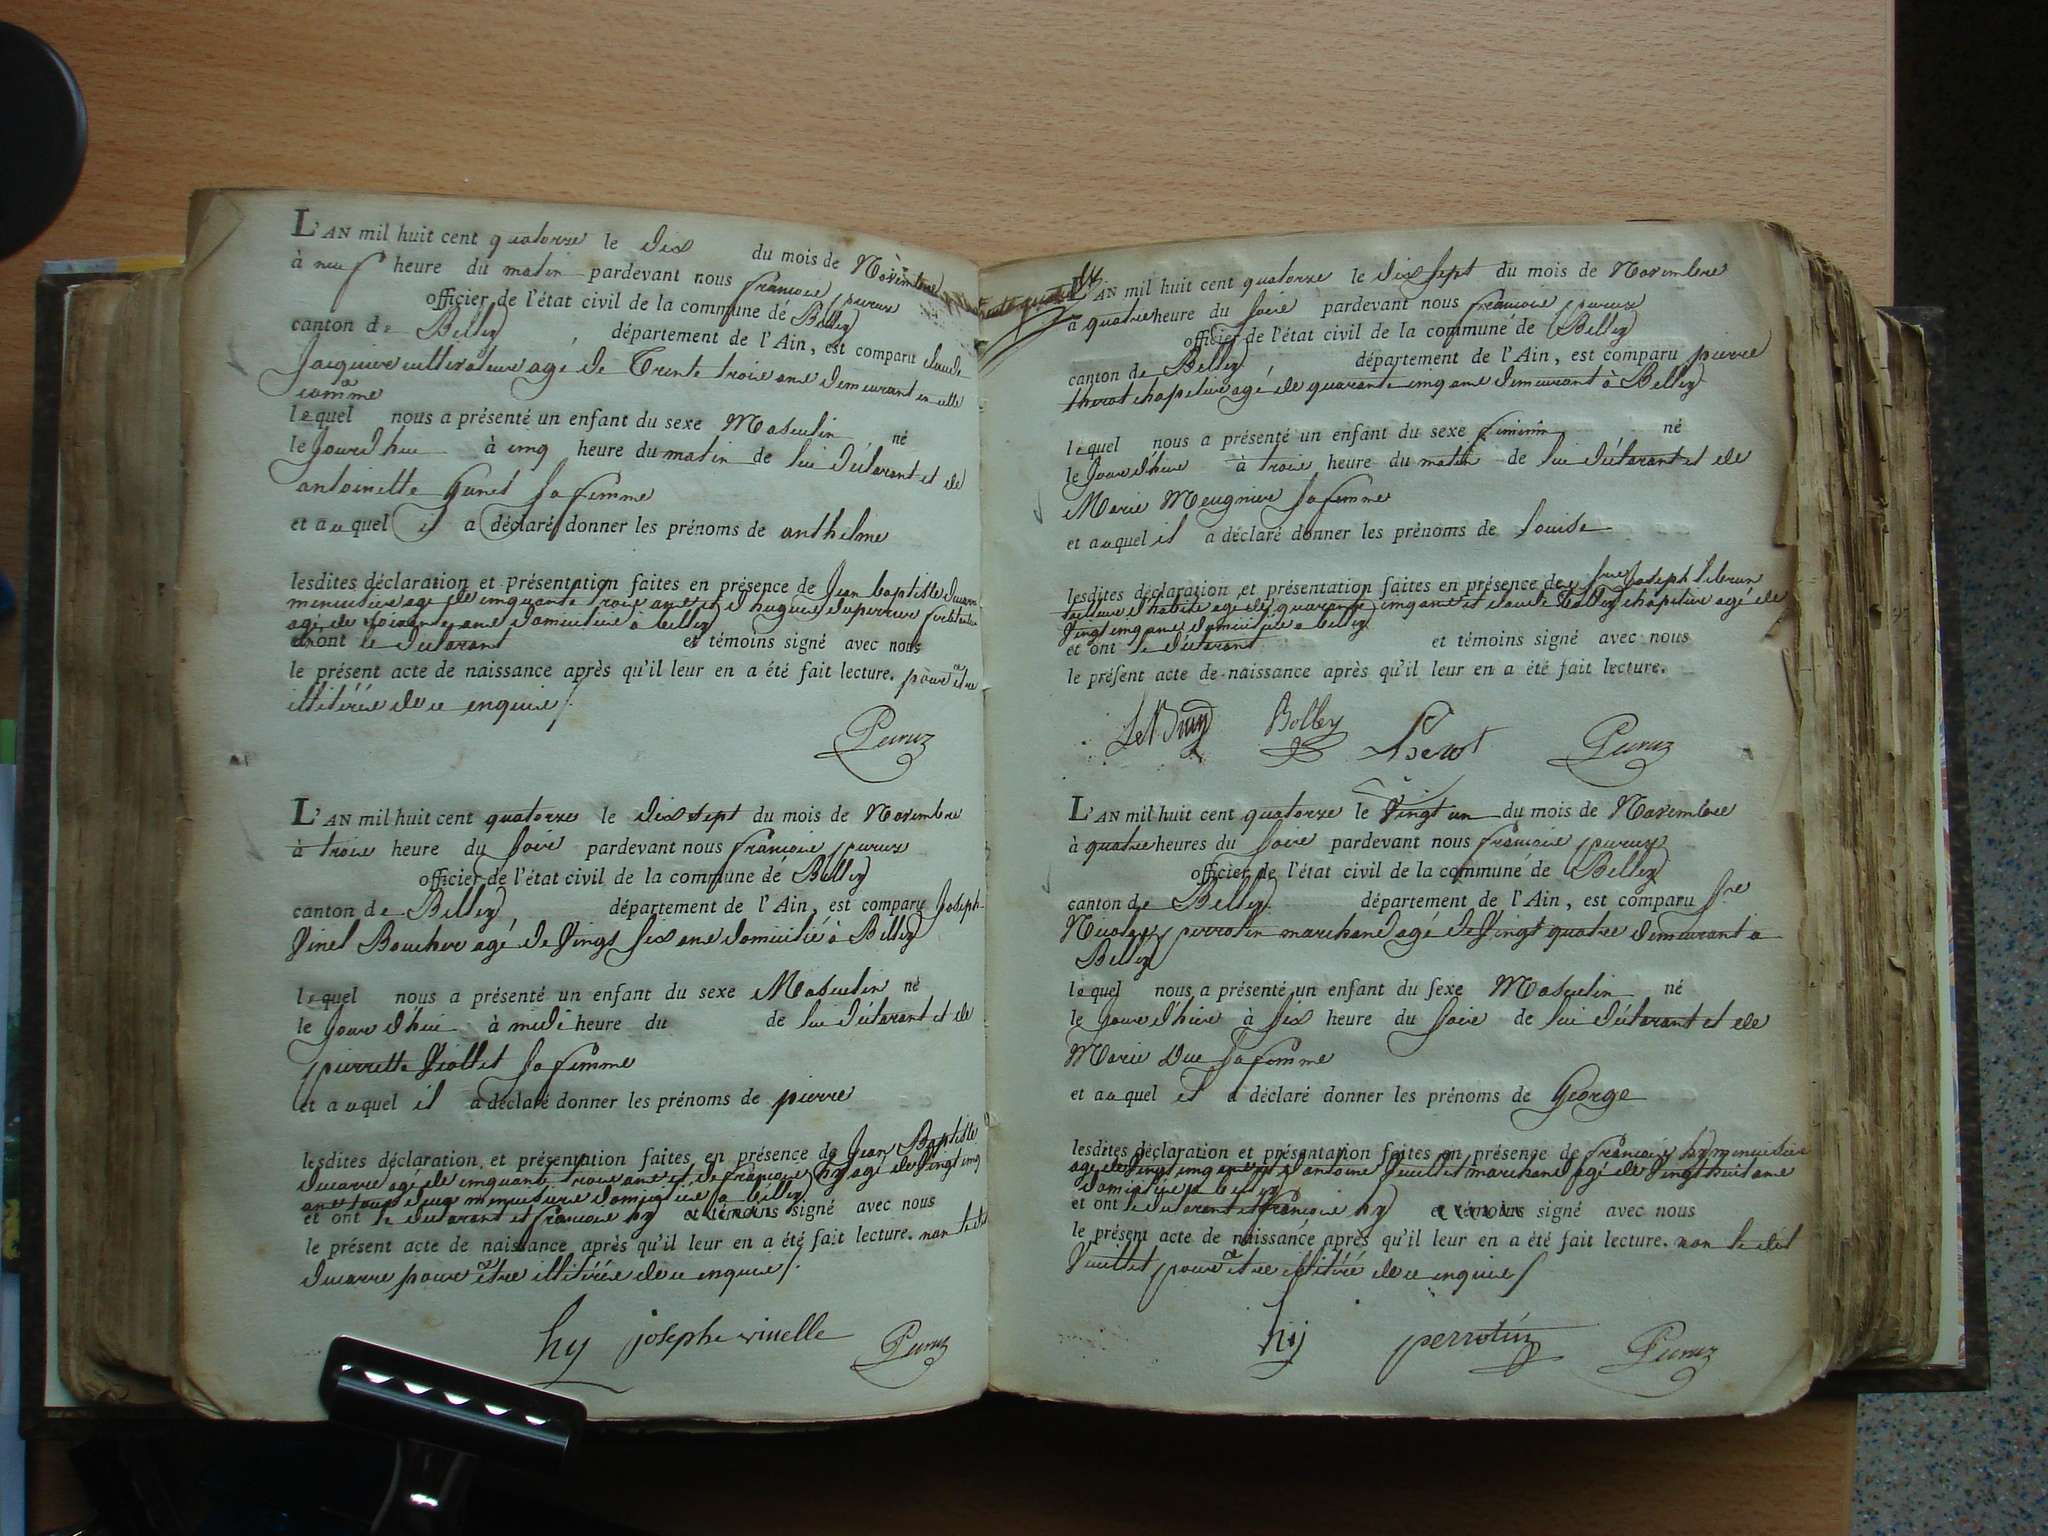 L'AN mil huit cent quatorze le dix du mois de Novembre
à neuf heure du matin pardevant nous francois peruz
officier de l'état civil de la commune de Belley
canton de Belley, département de l'Ain, est comparu claude
Jacquier cultivateur agé de Trente trois ans demeurant en cette
comme
lequel nous a présenté un enfant du sexe Masculin né
le Jourdhui à cinq heure du matin de lui déclarant et de
antoinette sa femme
et auquel il a déclaré donner les prénoms de anthelme
lesdites déclaration et présentation faites en présence de Jean baptiste ducarre
menuisier agé de cinquante trois ans et d hugues duperrier
agé de ans domicilié a belley
et ont le déclarant et témoins signé avec nous
le présent acte de naissance après qu'il leur en a été fait lecture. pour être
illitérés de ce enquis /.
Peruz
L'AN mil huit cent quatorze le dix sept du mois de Novembre
à trois heure du soir pardevant nous francois peruz
officier de l'état civil de la commune de Belley
canton de Belley, département de l'Ain, est comparu Joseph
Vinel Boucher agé de Vingt six ans domicilié à Belley
lequel nous a présenté un enfant du sexe Masculin né
le Jour d'hui à midi heure du de lui déclarant et de
pierrette Viollet sa femme
et auquel il a déclaré donner les prénoms de pierre
lesdites déclaration et présentation faites en présence de Jean Baptiste
ducarre agé de cinquante trois ans et de francois hy agé de Vingt cinq
ans tous deux menuisiers domiciliés a belley
et ont le déclarant et francois hy et témoins signé avec nous
le présent acte de naissance après qu'il leur en a été fait lecture. non ledit
ducarre pour être illitérée de ce enquis /.
hy josephe vinelle Peruz
L'AN mil huit cent quatorze le dix sept du mois de Novembre
à quatre heure du soir pardevant nous francois peruz
officier de l'état civil de la commune de Belley
canton de Belley département de l'Ain, est comparu pierre
therot chapelier agé de quarante cinq ans demeurant à Belley
lequel nous a présenté un enfant du sexe féminin né
le Jour d'hui à trois heure du matin de lui déclarant et de
Marie Meugnier sa femme
et auquel il a déclaré donner les prénoms de Louise
lesdites déclaration et présentation faites en présence de Joseph lebrun
tailleur d habits agé de quarante cinq ans et claude Bolley chapelier agé de
Vingt cinq ans domiciliés a belley
et ont le déclarant et témoins signé avec nous
le présent acte de naissance après qu'il leur en a été fait lecture.
LeBrun Bolley therot Peruz
L'AN mil huit cent quatorze le Vingt un du mois de Novembre
à quatre heures du soir pardevant nous francois peruz
officier de l'état civil de la commune de Belley
canton de Belley département de l'Ain, est comparu Sre
Nicolas perrotin marchand agé de Vingt quatre demeurant a
Belley
lequel nous a présenté un enfant du sexe Masculin né
le Jour d'hui à six heure du soir de lui déclarant et de
Marie Duc sa femme
et auquel il a déclaré donner les prénoms de George
lesdites déclaration et présentation faites en présence de francois hy menuisier
agé de Vingt cinq ans et d antoine Vuillet marchand agé de Vingt huit ans
domiciliés a belley
et ont le déclarant et francois hy et témoins signé avec nous
le présent acte de naissance après qu'il leur en a été fait lecture. non le dit
Vuillet pour être illitéré de ce enquis /
hy perrotin Peruz